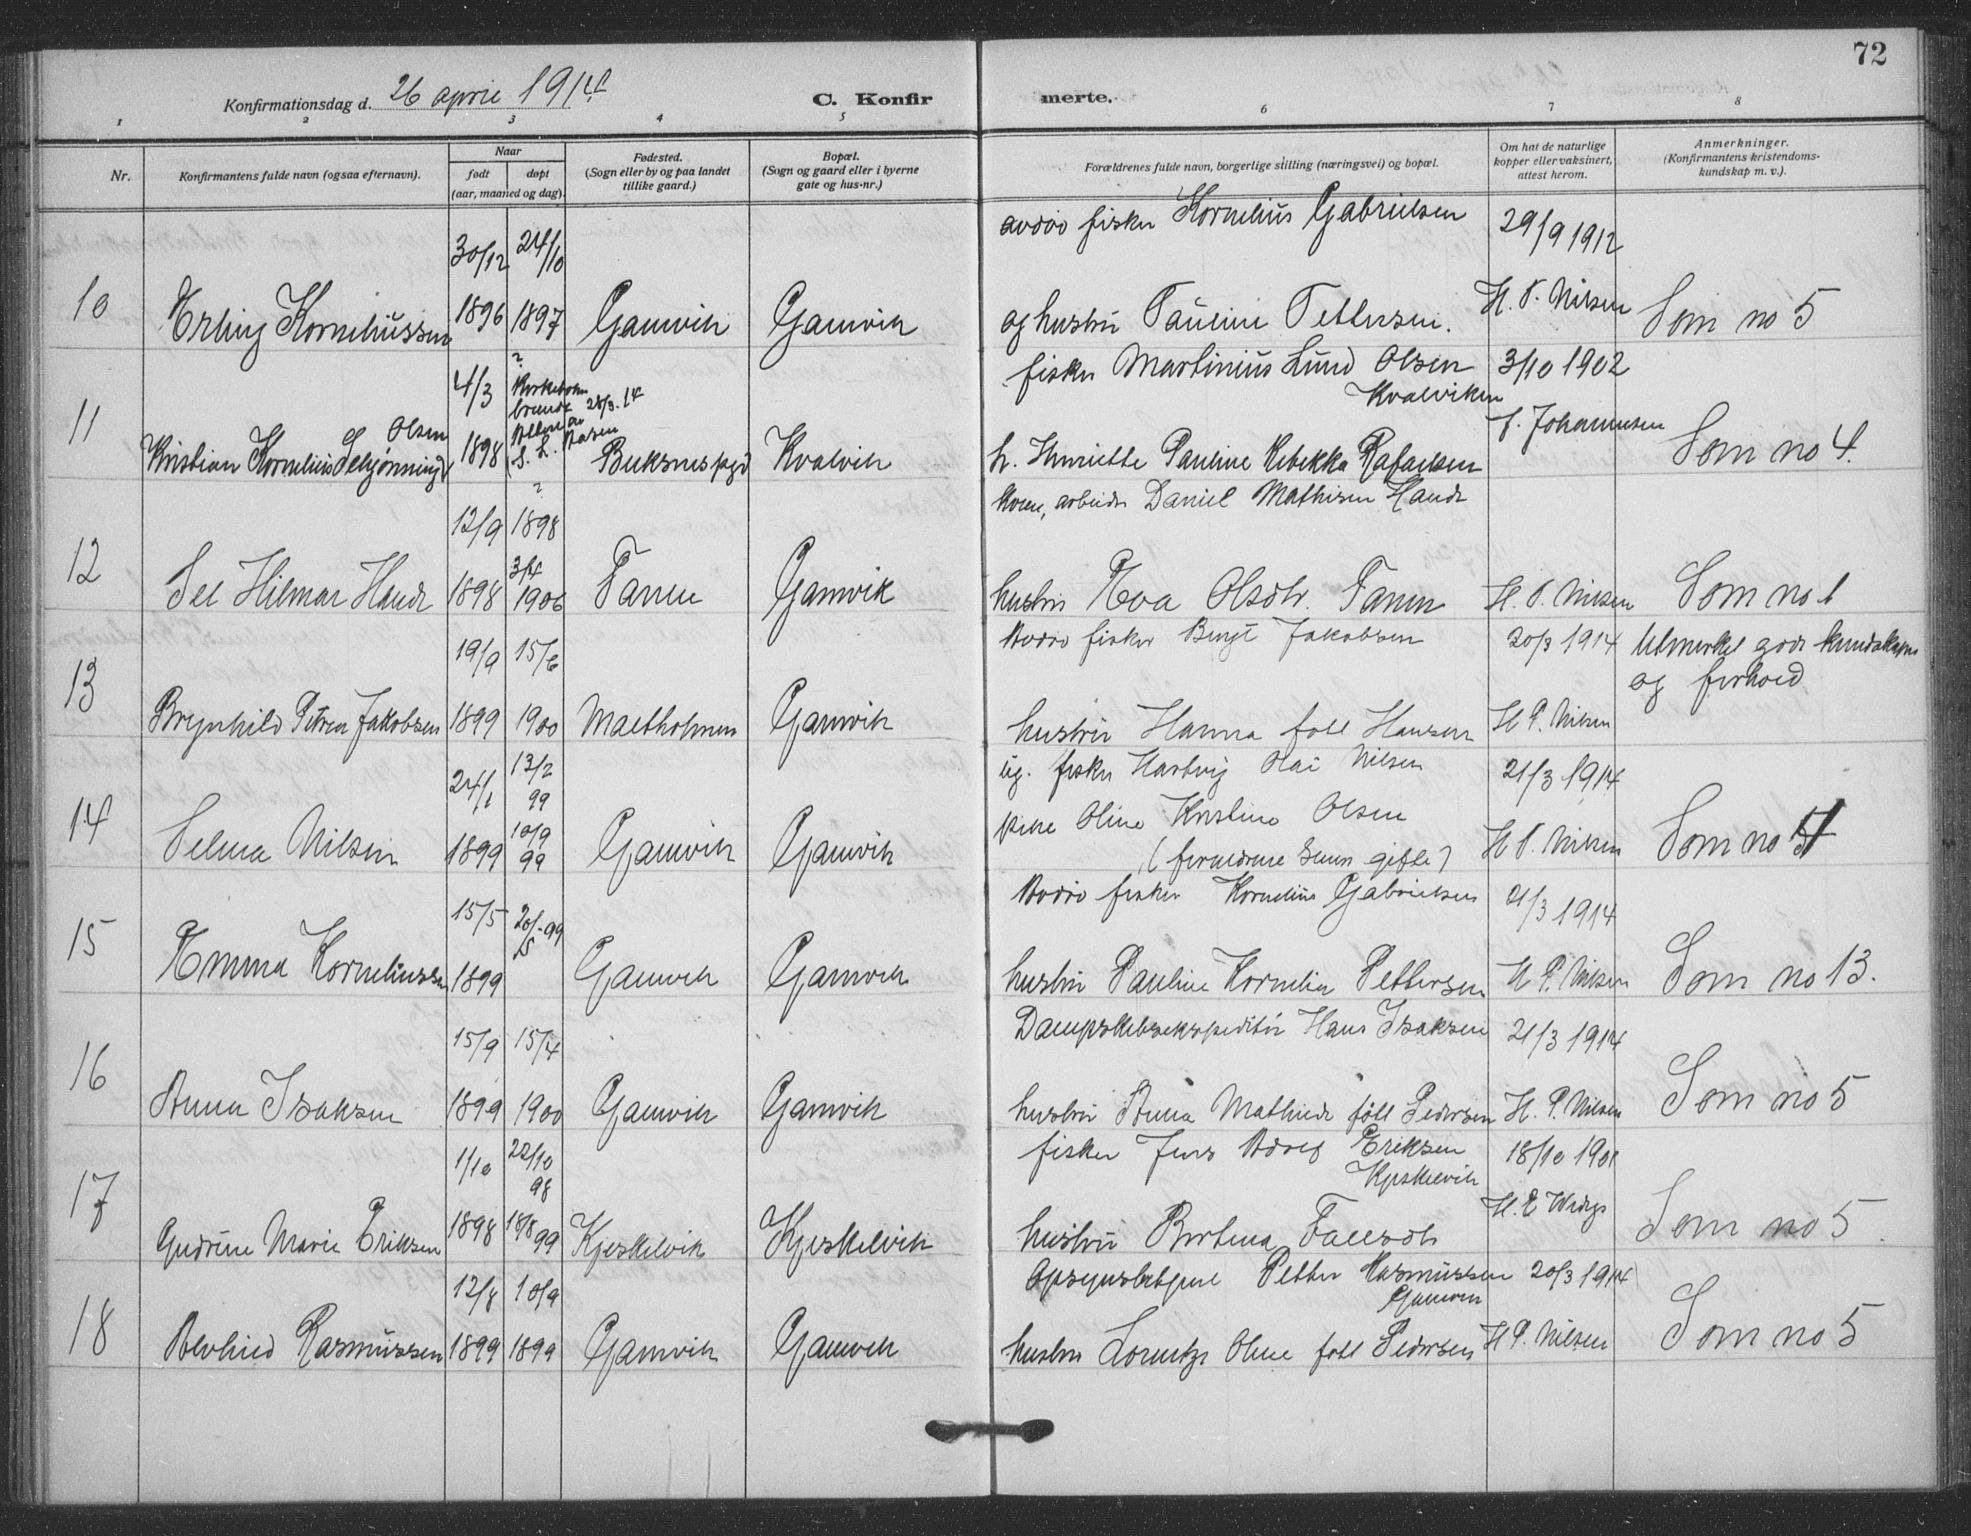 72
Konfirmationsdag d. 26 april 1914 C. Konfirmerte.
1 2 3 4 5 6 7 8
Nr. Konfirmantens fulde navn (ogsaa efternavn). Naar født døpt (aar, maaned og dag). Fødested. (Sogn eller by og paa landet tillike gaard.) Bopæl. (Sogn og gaard eller i byerne gate og hus-nr.) Forældrenes fulde navn, borgerlige stilling (næringsvei) og bopæl. Om hat de naturlige kopper eller vaksinert, attest herom. Anmerkninger. (Konfirmantens kristendoms-kundskap m. v.).
30/12 24/10 avdød fisker Kornelius Gabrielsen 29/9 1912
10 Erling Korneliussen 1896 1897 Gamvik Gamvik og hustru Pauline Pettersen. H. P. Nilsen Som no 5
4/3 ? Kirkebokn brændt 28/3.14 fisker Martinius Lund Olsen 3/10 1902
Kvalviken
11 Kristian Kornelius Olsen 1898 Buksnes pgd Kvalvik h. Henriette Pauline Rebekka Rafaelsen J. Johannesen Som no 4.
12/9 ? 1898 kven, arbeider Daniel Mathisen Hande
12 Hilmar Hande 1898 3/4 1906 Tanen Gamvik hustru Eva Olsdtr. Tanen H. P. Nilsen Som no 1
19/9 15/6 Avdød fisker Bengt Jakobsen 20/3 1914 Utmerket gode kundskaper og forhold
13 Brynhild Petrea Jakobsen 1899 1900 Gamvik hustru Hanna født Hansen H P. Nilsen
24/1 13/2 99 ug. fisker Hartvig Olai Nilsen 21/3 1914
14 Selma Nilsen 1899 10/9 99 Gamvik Gamvik pike Oline Kristine Olsen H P. Nilsen Som no
(forældrene senere gifte)
15/5 20/5-99 Avdød fisker Kornelius Gabrielsen 21/3 1914
15 Emma Korneliussen 1899 Gamvik Gamvik hustru Pauline Kornelia Pettersen H P. Nilsen Som no 13.
15/9 15/4 Dampskibsekspeditør Hans Isaksen 21/3 1914
16 Anna Isaksen 1899 1900 Gamvik Gamvik hustru Anna Mathilde født Pedersen H. P. Nilsen Som no 5
1/10 22/10 98 fisker Jens Adolf Eriksen 18/10 1901
Kjeskelvik
17 Gudrune Marie Eriksen 1898 18/8 99 Kjeskelvik Kjeskelvik hustru Bertina Som no 5.
12/8 10/9 Opsynsbetjent Petter Rasmussen 20/3 1914
Gamvik
18 Alvhild Rasmussen 1899 1899 Gamvik Gamvik hustru Lorentze Oline født Pedersen H P. Nilsen Som no 5